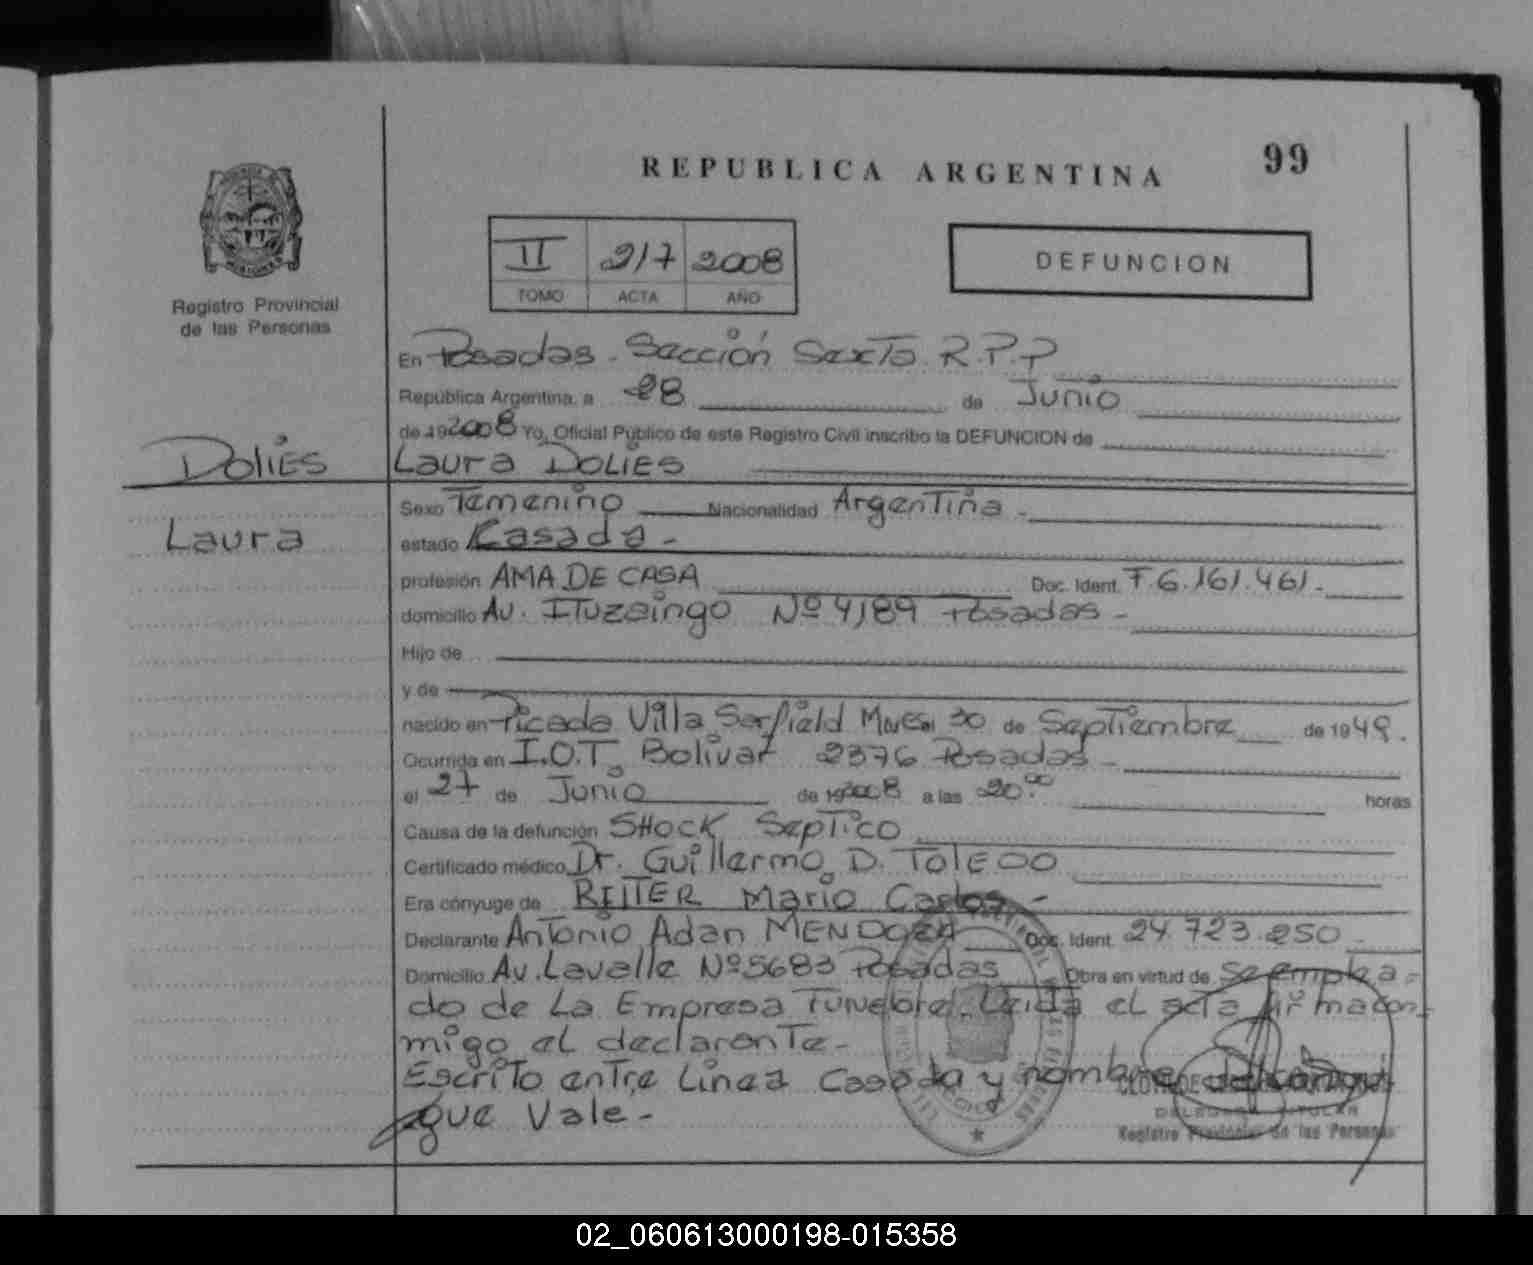 REPUBLICA ARGENTINA
99
II 217 2008
TOMO ACTA AÑO
DEFUNCION
Registro Provincial
de las Personas
En Posadas. Sección Sexta R.P.P
República Argentina, a 28 de Junio
de 192008 Yo, Oficial Público de este Registro Civil inscribo la DEFUNCION de
DOLIES Laura DOLIES
Sexo Femenino Nacionalidad Argentina -
Laura
estado Casada -
profesión AMA DE CASA Doc. Ident. F 6.161.461.-
domicilio Av. Ituzaingo Nº 4189 Posadas -
Hijo de
y de
nacido en Picada Villa Sarfield Mnes. 30 de Septiembre de 1949.
Ocurrida en I.O.T. Bolivar 2376 Posadas -
el 27 de Junio de 192008 a las 20.00 horas
Causa de la defunción SHock Septico
Certificado médico Dr. Guillermo D. TOLEDO
Era cónyuge de REITER Mario Carlos -
Declarante Antonio Adan MENDOZA Doc. Ident. 24.723.250
Domicilio Av. Lavalle Nº 5683 Posadas Obra en virtud de Ser emplea-
do de La Empresa Funebre. Leida el acta firma con-
migo el declarante -
Escrito entre Linea Casada y nombre del conyu-
gue Vale -
DELEGADA TITULAR
Registro Provincial de las Personas
02_060613000198-015358